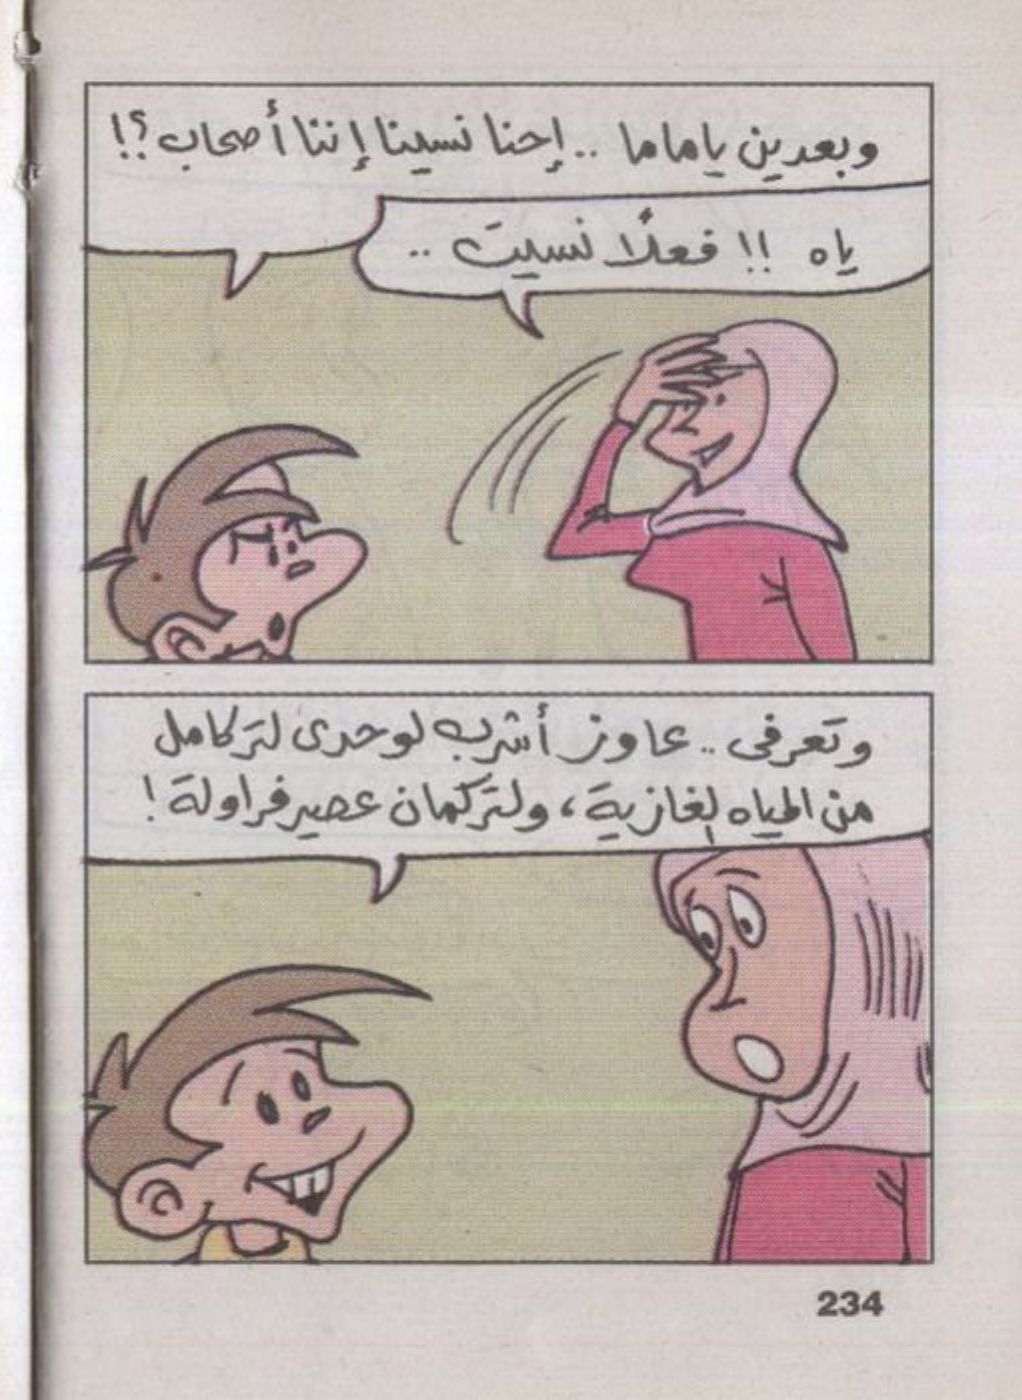 وبعدين ياماما .. إحنا نسينا إننا أصحاب؟!
ياه !! فعلًا نسيت ..
وتعرفى .. عاوز أشرب لوحدى لتر كامل
من المياه الغازية، ولتر كمان عصير فراولة!
234